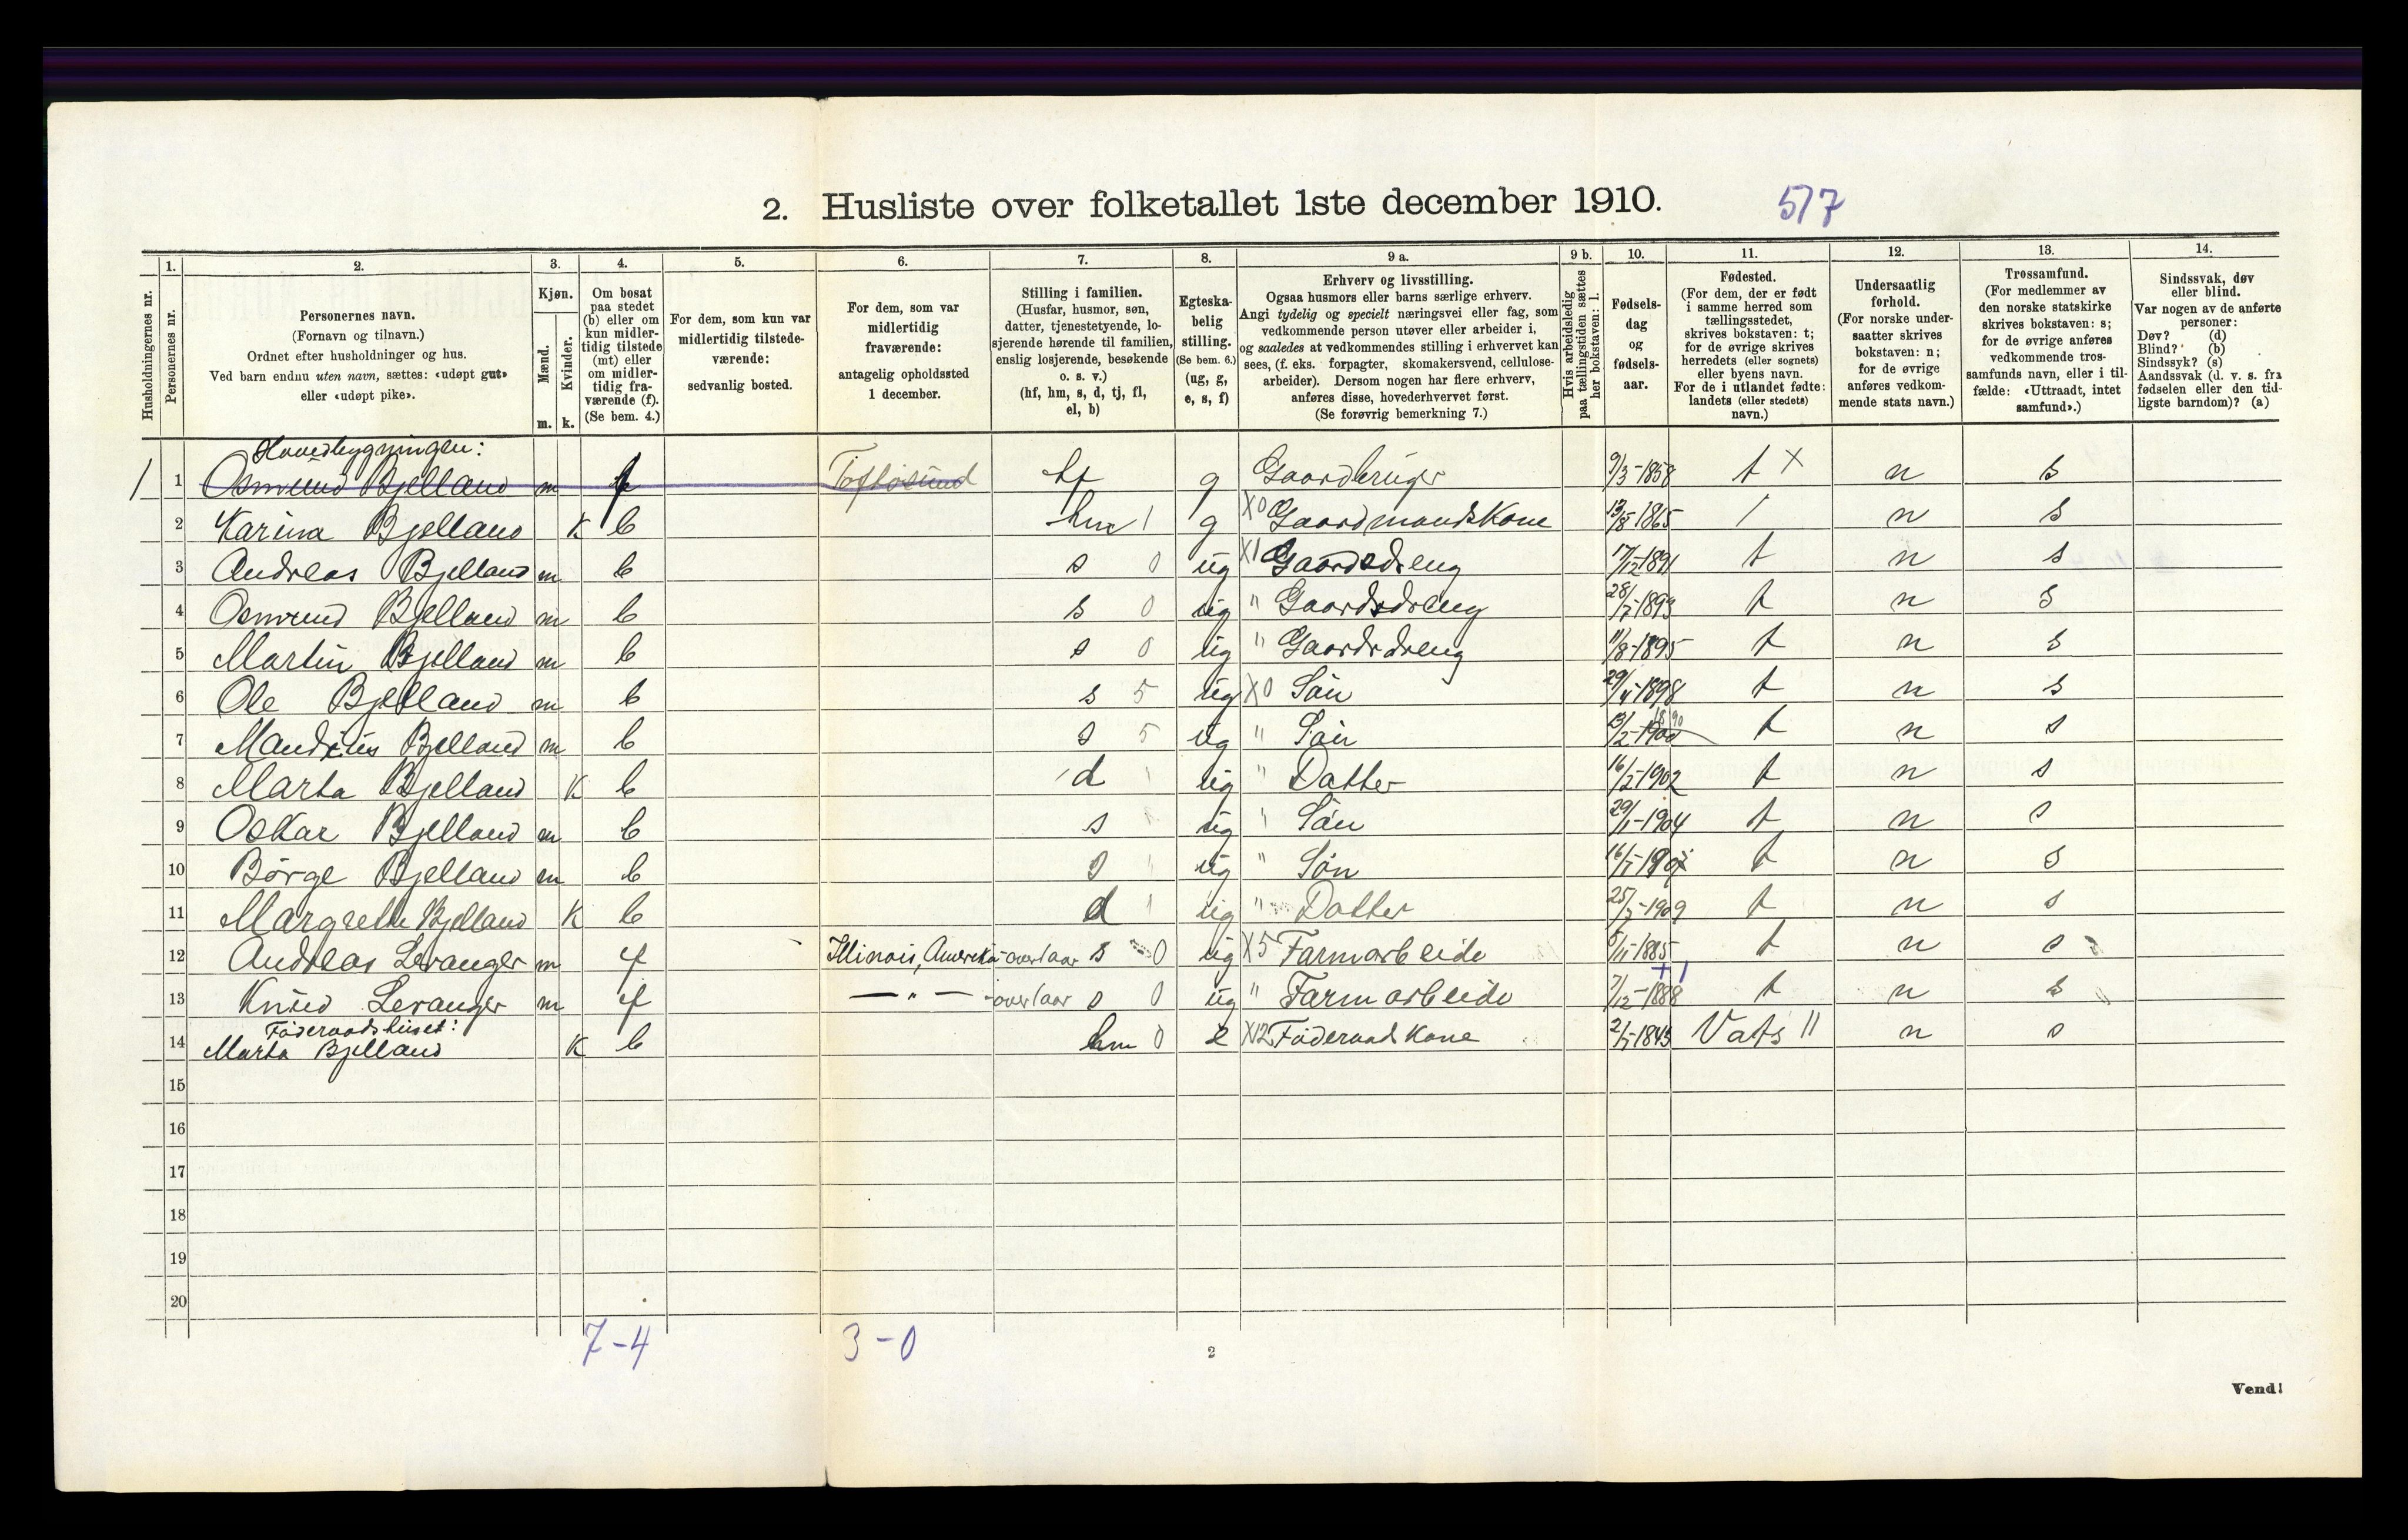 2. Husliste over folketallet 1ste december 1910. 577
1. 2. 3. 4. 5. 6. 7. 8. 9 a. 9 b. 10. 11. 12. 13. 14.
Husholdningernes nr.
Personernes nr.
Personernes navn.
(Fornavn og tilnavn.)
Ordnet efter husholdninger og hus.
Ved barn endnu uten navn, sættes: «udøpt gut»
eller «udøpt pike».
Kjøn.
Mænd.
Kvinder.
m. k.
Om bosat
paa stedet
(b) eller om
kun midler-
tidig tilstede
(mt) eller
om midler-
tidig fra-
værende (f).
(Se bem. 4.)
For dem, som kun var
midlertidig tilstede-
værende:
sedvanlig bosted.
For dem, som var
midlertidig
fraværende:
antagelig opholdssted
1 december.
Stilling i familien.
(Husfar, husmor, søn,
datter, tjenestetyende, lo-
sjerende hørende til familien,
enslig losjerende, besøkende
o. s. v.)
(hf, hm, s, d, tj, fl,
el, b)
Egteska-
belig
stilling.
(Se bem. 6.)
(ug, g,
e, s, f)
Erhverv og livsstilling.
Ogsaa husmors eller barns særlige erhverv.
Angi tydelig og specielt næringsvei eller fag, som
vedkommende person utøver eller arbeider i,
og saaledes at vedkommendes stilling i erhvervet kan
sees, (f. eks. forpagter, skomakersvend, cellulose-
arbeider). Dersom nogen har flere erhverv,
anføres disse, hovederhvervet først.
(Se forøvrig bemerkning 7.)
Hvis arbeidsledig
paa tællingstiden sættes
her bokstaven: l.
Fødsels-
dag
og
fødsels-
aar.
Fødested.
(For dem, der er født
i samme herred som
tællingsstedet,
skrives bokstaven: t;
for de øvrige skrives
herredets (eller sognets)
eller byens navn.
For de i utlandet fødte:
landets (eller stedets)
navn.)
Undersaatlig
forhold.
(For norske under-
saatter skrives
bokstaven: n;
for de øvrige
anføres vedkom-
mende stats navn.)
Trossamfund.
(For medlemmer av
den norske statskirke
skrives bokstaven: s;
for de øvrige anføres
vedkommende tros-
samfunds navn, eller i til-
fælde: «Uttraadt, intet
samfund».)
Sindssvak, døv
eller blind.
Var nogen av de anførte
personer:
Døv? (d)
Blind? (b)
Sindssyk? (s)
Aandssvak (d. v. s. fra
fødselen eller den tid-
ligste barndom)? (a)
Hovedbygningen:
1 1 Osmund Bjelland m f hf g Gaardbruger 9/3-1858 t X n s
2 Karina Bjelland K b hm 1 g X0 Gaardmandskone 13/8-1865 n s
3 Andreas Bjelland m b s 0 ug X1 Gaardsdreng 17/12-1891 t n s
4 Osmund Bjelland m b s 0 ug " Gaardsdreng t n s
5 Martin Bjelland m b s 0 ug " Gaardsdreng 11/8-1895 t n s
6 Ole Bjelland m b s 5 ug X0 Søn 29/4-1898 t n s
7 Bjelland m b s 5 ug " Søn t n s
8 Marta Bjelland K b d ug " Datter 16/2-1902 t n s
9 Oskar Bjelland m b s ug " Søn 29/1-1904 t n s
10 Børge Bjelland m b s ug " Søn t n s
11 Margrethe Bjelland K b d ug " Datter t n s
12 Andreas Leranger m f Illinois, Amerika -over 1 aar s 0 ug X5 Farmarbeide 5/11-1885 t n s
13 Knud Leranger m f — " — -over 1 aar s 0 ug " Farmarbeide 7/12-1888 t n s
Føderaadshuset:
14 Marta Bjelland K b hm 0 e X12 Føderaadkone Vats 11 n s
15
16
17
18
19
20
7-4 3-0
2
Vend!